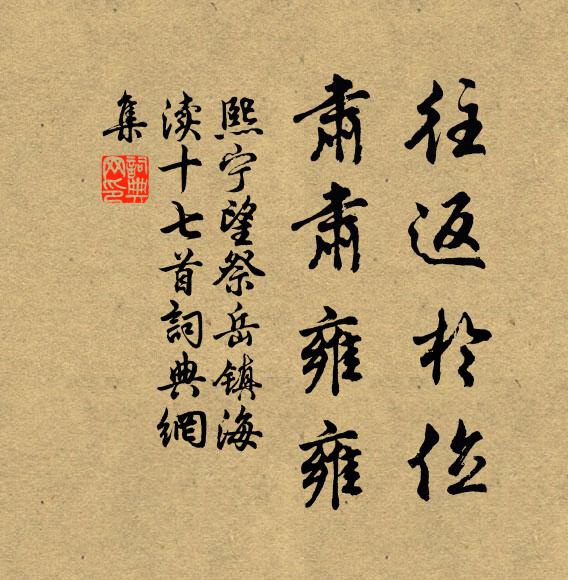 往返於位
肅肅雍雍
熙宁望祭岳鎮海
渎十七首詞典網
集
詞典网印